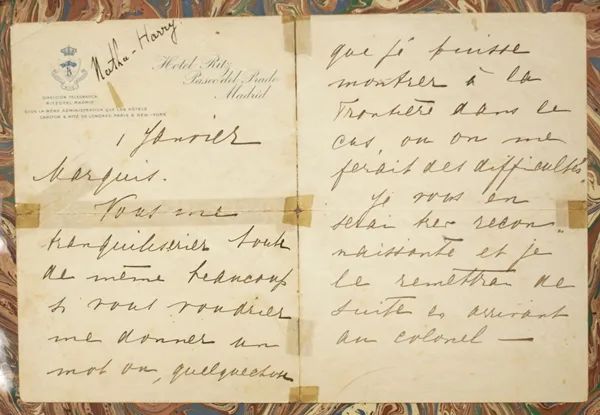 Matha-Harry
Hotel Ritz
Paseo del Prado
Madrid
DIRECCION TELEGRAFICA
RITZOTEL MADRID
SOUS LA MÊME ADMINISTRATION QUE LES HÔTELS
CARLTON & RITZ DE LONDRES, PARIS & NEW-YORK
1 Janvier
Marquis.
Vous me
tranquiliseriez toute
de même beaucoup
si vous voudriez
me donner un
mot ou, quelquechose
que je puisse
montrer à la
Frontière dans le
cas, ou on me
ferait des difficultés.
Je vous en
serai tres recon-
naissante et je
le remettrai de
suite en arrivant
au colonel —